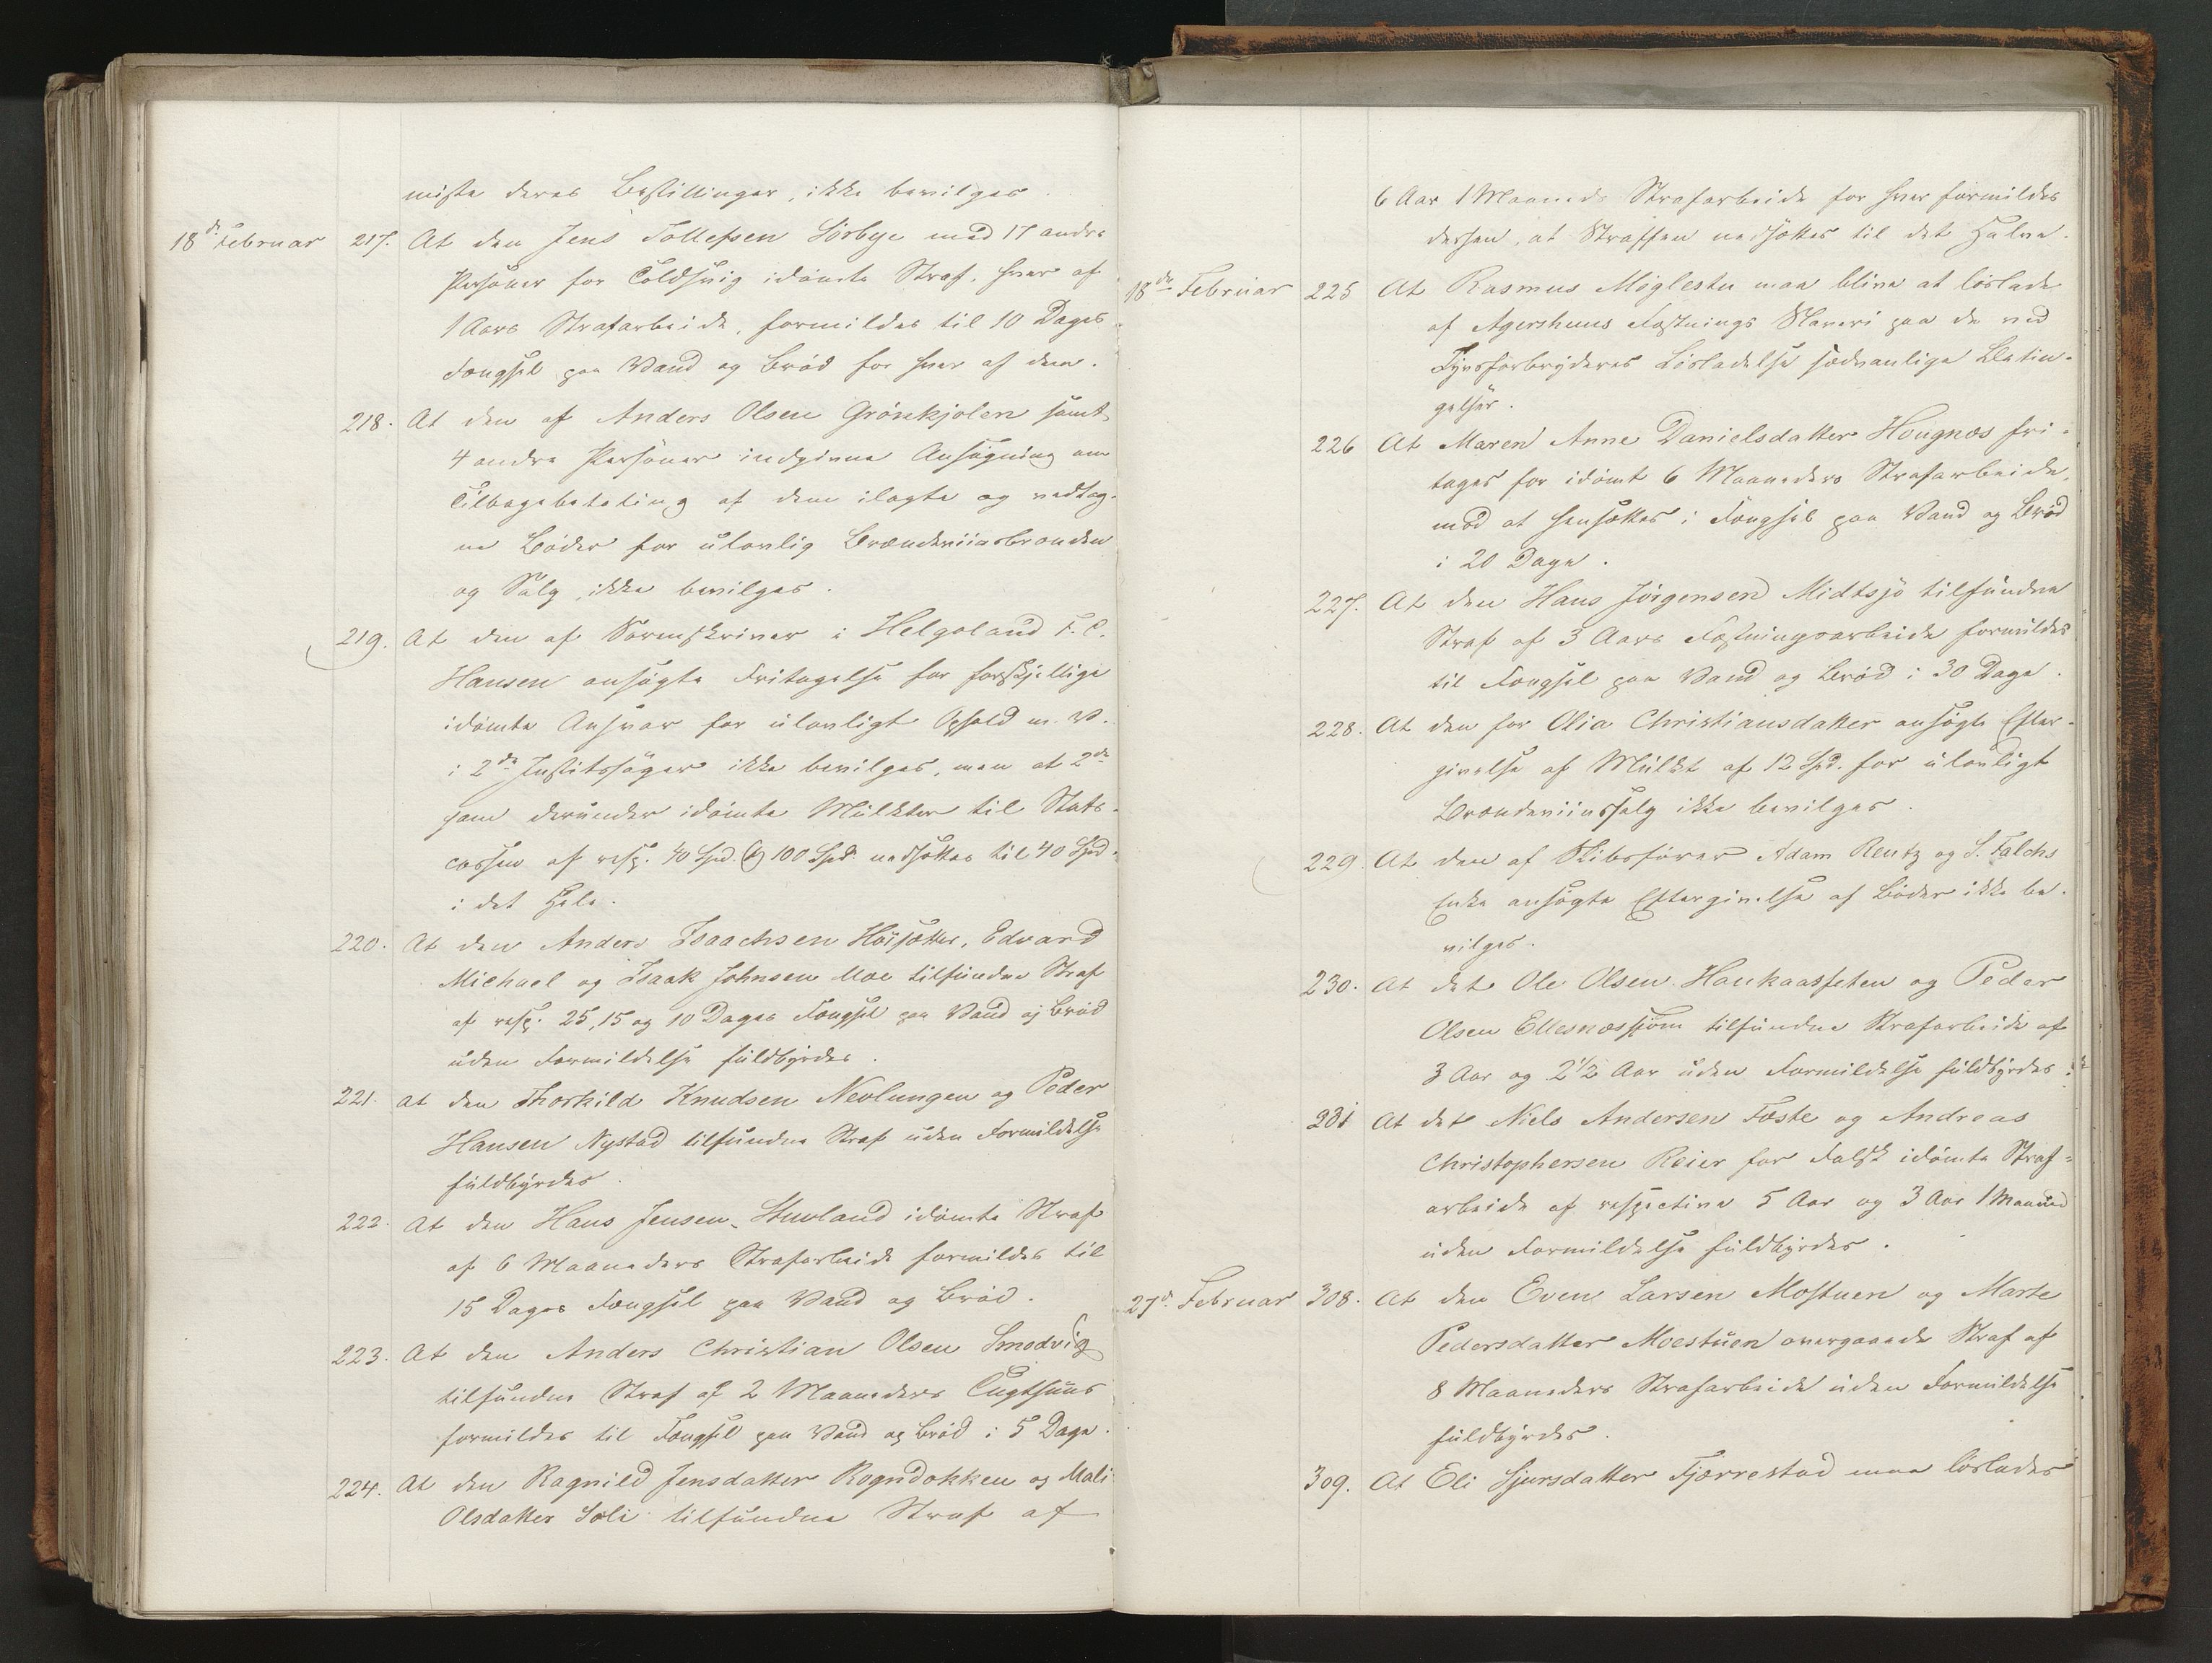 miste deres Bestillinger, ikke bevilges.
18de Februar 217. At den Jens Tollefsen Sörbye med 17 andre
Personer for Toldsvig idömte Straf, hver af
1 Aars Strafarbeide, formildes til 10 Dages
Fængsel paa Vand og Bröd for hver af dem.
218. At den af Anders Olsen Grönkjolen samt
4 andre Personer indgivne Ansögning om
Tilbagebetaling af dem ilagte og vedtag-
ne Böder for ulovlig Brændeviinsbrænden
og Salg, ikke bevilges.
219. At den af Sorenskriver i Helgoland F. C.
Hansen ansögte Fritagelse for forskjellige
idömte Ansvar for ulovligt Ophold m. V.
i 2de Justitssager ikke bevilges, men at 2de
ham derunder idömte Mulkter til Stats-
cassen af resp. 40 Spd. & 100 Spd. nedsættes til 40 Spd.
i det Hele.
220. At den Anders Isaachsen Höisætter, Edvard
Michael og Isaak Johnsen Moe tilfundne Straf
af resp. 25, 15 og 10 Dages Fængsel paa Vand og Bröd
uden Formildelse fuldbyrdes.
221. At den Thorkild Knudsen Nevlungen og Peder
Hansen Nystad tilfundne Straf uden Formildelse
fuldbyrdes.
222. At den Hans Jensen Stuvland idömte Straf
af 6 Maaneders Strafarbeide formildes til
15 Dages Fængsel paa Vand og Bröd.
223. At den Anders Christian Olsen Smedvig
tilfundne Straf af 2 Maaneders Tugthuus
formildes til Fængsel paa Vand og Bröd i 5 Dage.
224. At den Ragnild Jensdatter Rogndokken og Mali
Olsdatter Sæli tilfundne Straf af
6 Aar 1 Maaneds Strafarbeide for hver formildes
derhen, at Straffen nedsættes til det Halve.
18de Februar 225 At Rasmus Möglestu maa blive at löslade
af Agershuus Fæstnings Slaveri paa de ved
Tyvsforbryderes Lösladelse sædvanlige Betin-
gelser.
226 At Maren Anne Danielsdatter Hougnæs fri-
tages for idömt 6 Maaneders Strafarbeide,
mod at hensættes i Fængsel paa Vand og Bröd
i 20 Dage.
227. At den Hans Jörgensen Midtsjö tilfundne
Straf af 3 Aars Fæstningsarbeide formildes
til Fængsel paa Vand og Bröd i 30 Dage.
228. At den for Olia Christiansdatter ansögte Efter-
givelse af Mulkt af 12 Spd. for ulovligt
Brændeviinssalg ikke bevilges.
229. At den af Skibsförer Adam Rentz og S. Falchs
Enke ansögte Eftergivelse af Böder ikke be-
vilges.
230. At det Ole Olsen Haukaasseten og Peder
Olsen Ellesnæssjöen tilfundne Strafarbeide af
3 Aar og 2 1/2 Aar uden Formildelse fuldbyrdes.
231 At det Niels Andersen Fæste og Andreas
Christophersen Reier for Falsk idömte Straf-
arbeide af respective 5 Aar og 3 Aar 1 Maaned
uden Formildelse fuldbyrdes.
27d. Februar 308. At den Even Larsen Mostuen og Marte
Pedersdatter Moestuen overgaaede Straf af
8 Maaneders Strafarbeide uden Formildelse
fuldbyrdes.
309. At Eli Sjursdatter Fjærrestad maa löslades